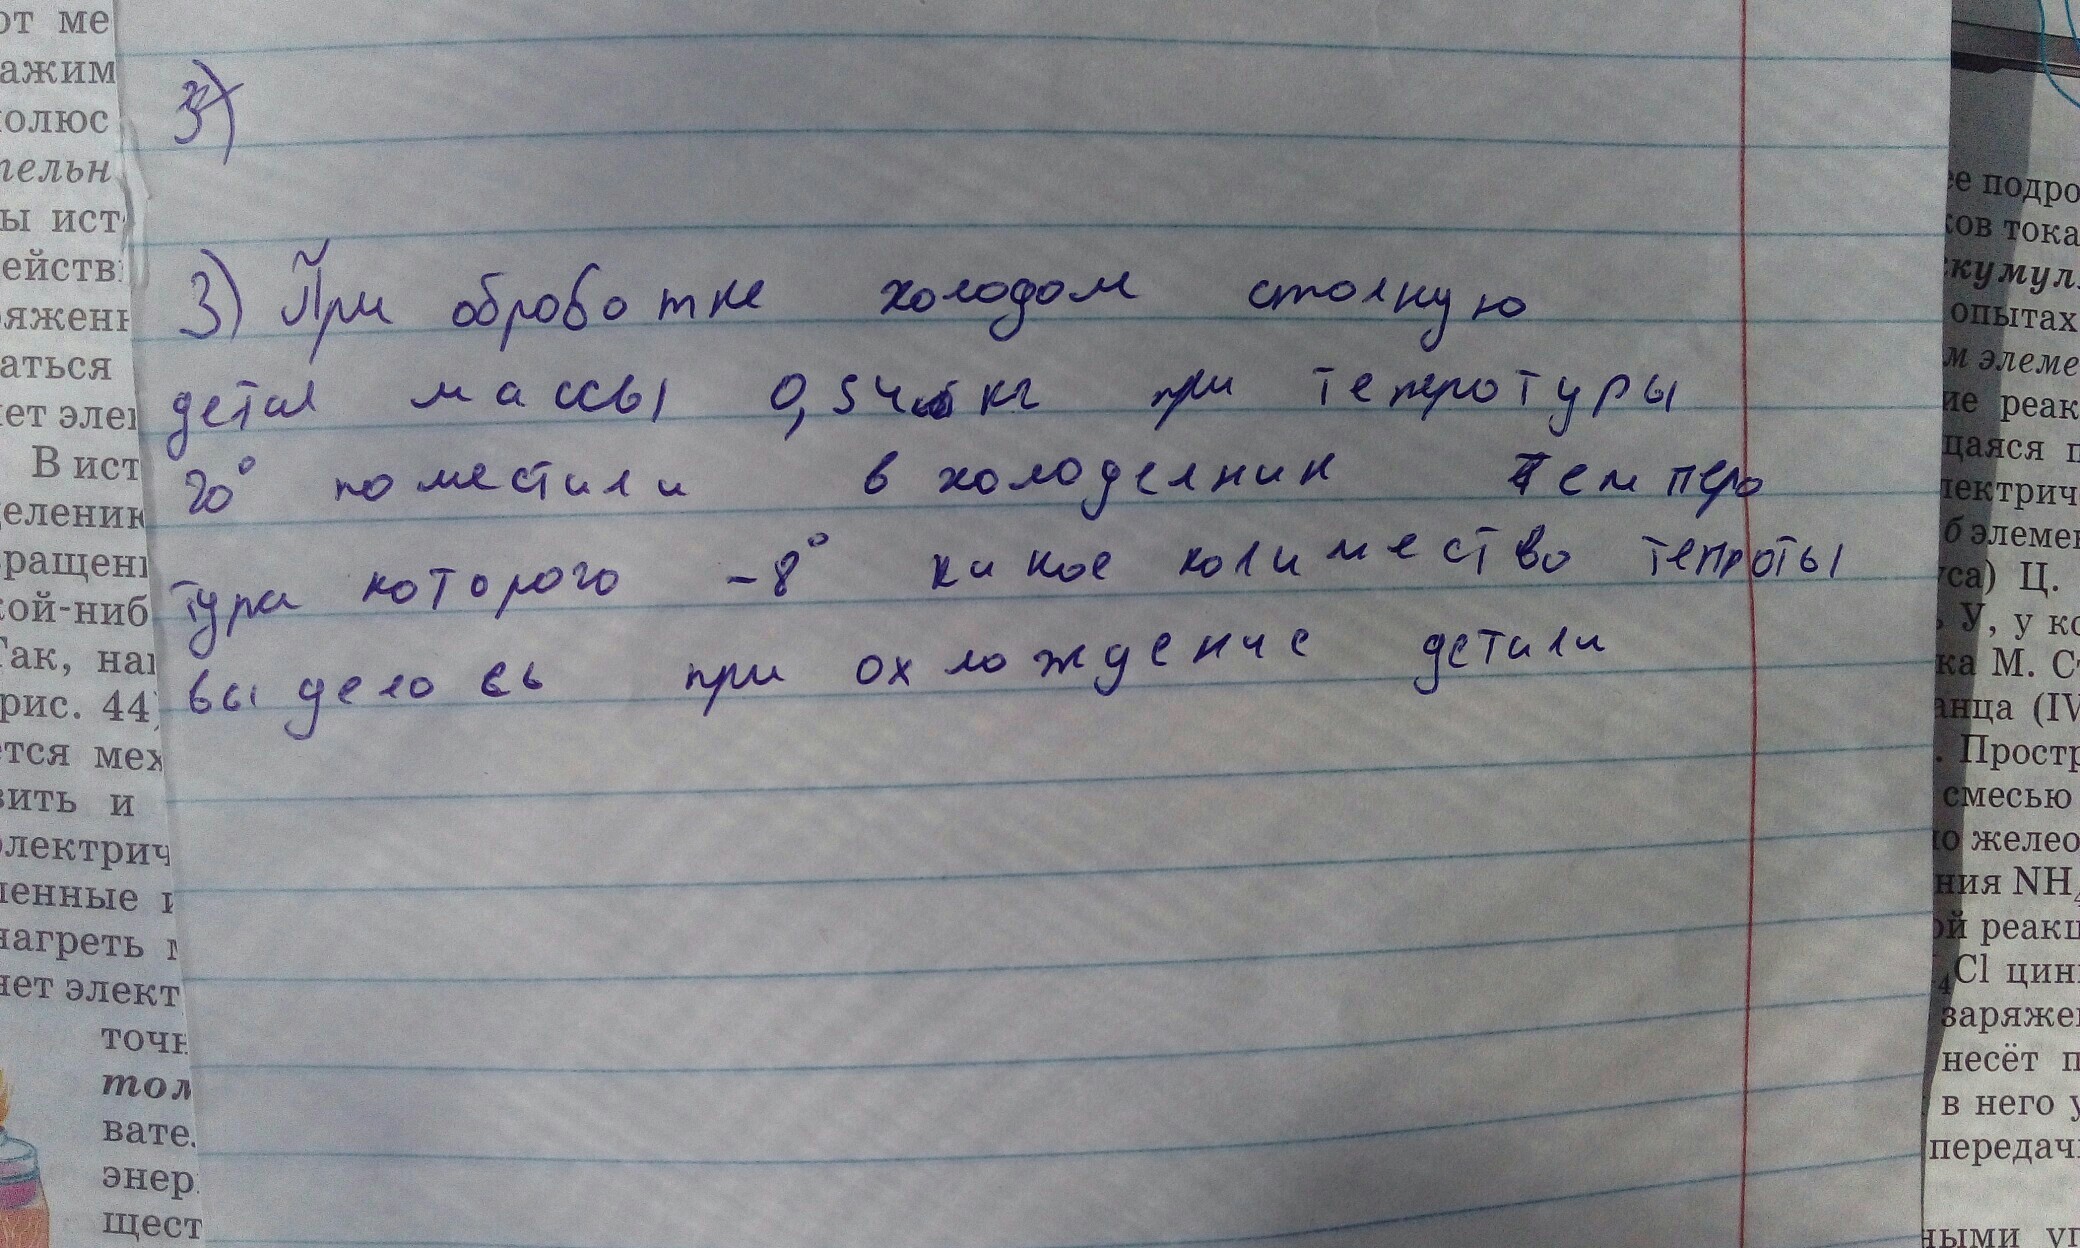 от ме
ажим
олюс
тельн
ы ист
ейств
яжени
аться
ет эле
В ист
елению
ращени
кой-ниб
Так, наг
рис. 44
ется мех
вить и
электрич
ленные и
нагреть
нет элект
точн
вате.
энер
щест
3)
3) При обработке холодом столную
детал массы 0,54 кг при темпротуры
20° поместили в холоделник Темпера
тура которого -8° какое количество тепроты
выделось при охлождение детали
ее подро
ков тока
кумул
опытах
м элеме
ие реак
щаяся п
лектрич
б элемен
са) Ц.
У, у ко
ка М. Ст
анца (IV
. Простр
смесью
о желео
ния NH₄
ой реакц
₄Cl цин
заряже
несёт п
в него у
передач
ными уг